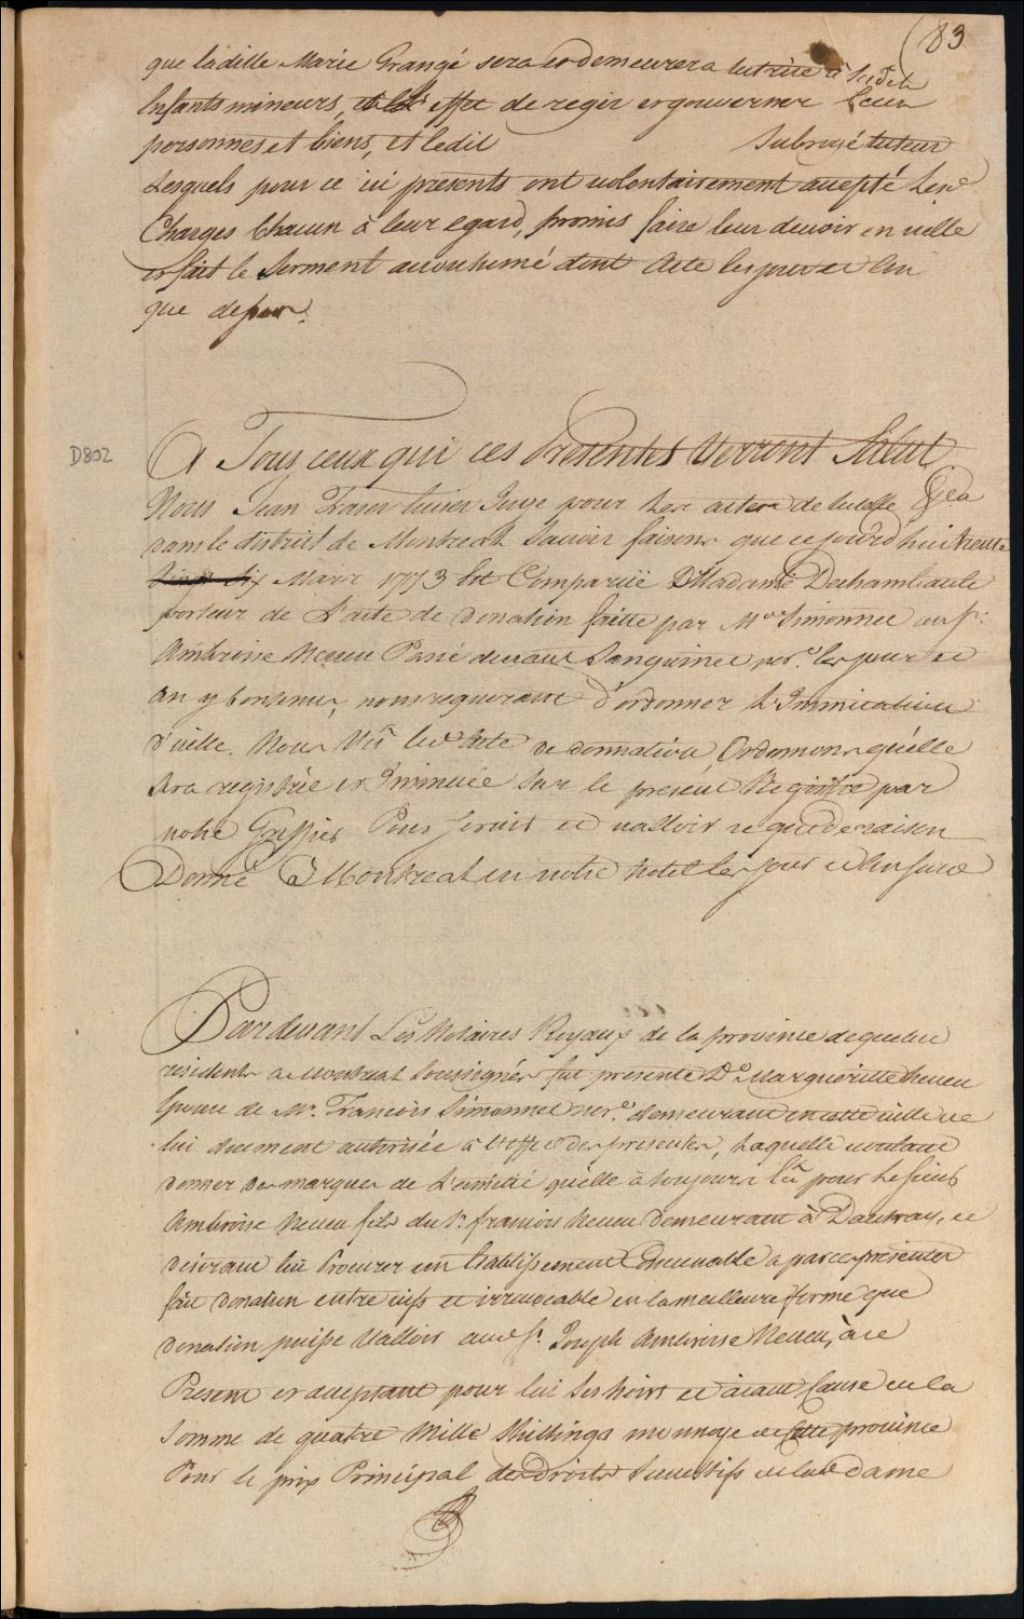 83
que ladille Marie Grangé sera et demeurera tutrice à Sesdts
Enfants mineurs, et effet de regir et gouverner Leurs
personnes et biens, et ledit subrogé tuteur
Lesquels pour ce ici presents ont volontairement accepté Lesd
Charges Chacun à leur egard, promis faire leur devoir en icelle
et fait le Serment accoutumé dont Acte les jour et An
que dessus.
D802
A Tous ceux qui ces Presentes Verront Salut
Nous Jean Fraser Ecuier Juge pour Les actes de
dans le district de Montreal Savoir faisons que cejourd'hui trente
Mars 1773 Est Comparüe Madame Dechambault
porteur de L'acte de Donation faitte par Me Simonnet au Sr
Ambroise Neveu Passé devant Sanguinet les jour et
an y contenus, nous requerant d'ordonner L'Insinuation
d'icelle. Nous Vû led. Acte de donnation, Ordonnons qu'elle
Sera registrée et Insinuée Sur le present Registre par
notre Greffier Pour Servir et valloir ce que de raison
Donné à Montreal en notre hotel les jour et An susd
Pardevant Les Notaires Royaux de la province de quebec
residents a Montreal Soussignés fut presente De Margueritte Neveu
Epouse de Mr. François Simonnet demeurant en cette ville de
lui duement autorisée à l'Effet des presentes, Laquelle voulant
donner des marques de L'amitié qu'elle à toujours Eû pour Le Sieur
Ambroise Neveu fils du Sr. françois Neveu demeurant à Dautray, et
desirant lui Procurer un Etablissement Convenable a par ces presentes
fait Donation entre vifs et irrevocable en la meilleure forme que
donation puisse Valloir aud. Sr. Joseph Ambroise Neveu, à ce
Present et acceptant pour lui Ses hoirs et aiant Cause de la
Somme de quatre Mille Shillings monnoye de Cette province
Pour le prix Principal des Droits Successifs de lad. dame